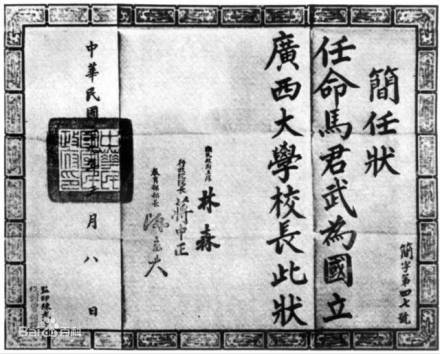 簡任狀
任命馬君武為國立
廣西大學校長此狀
國民政府主席 林森
行政院院長 蔣中正
教育部部長 陳立夫
中華民國 年 月八日
簡字第四七號
監印
Baidu百科